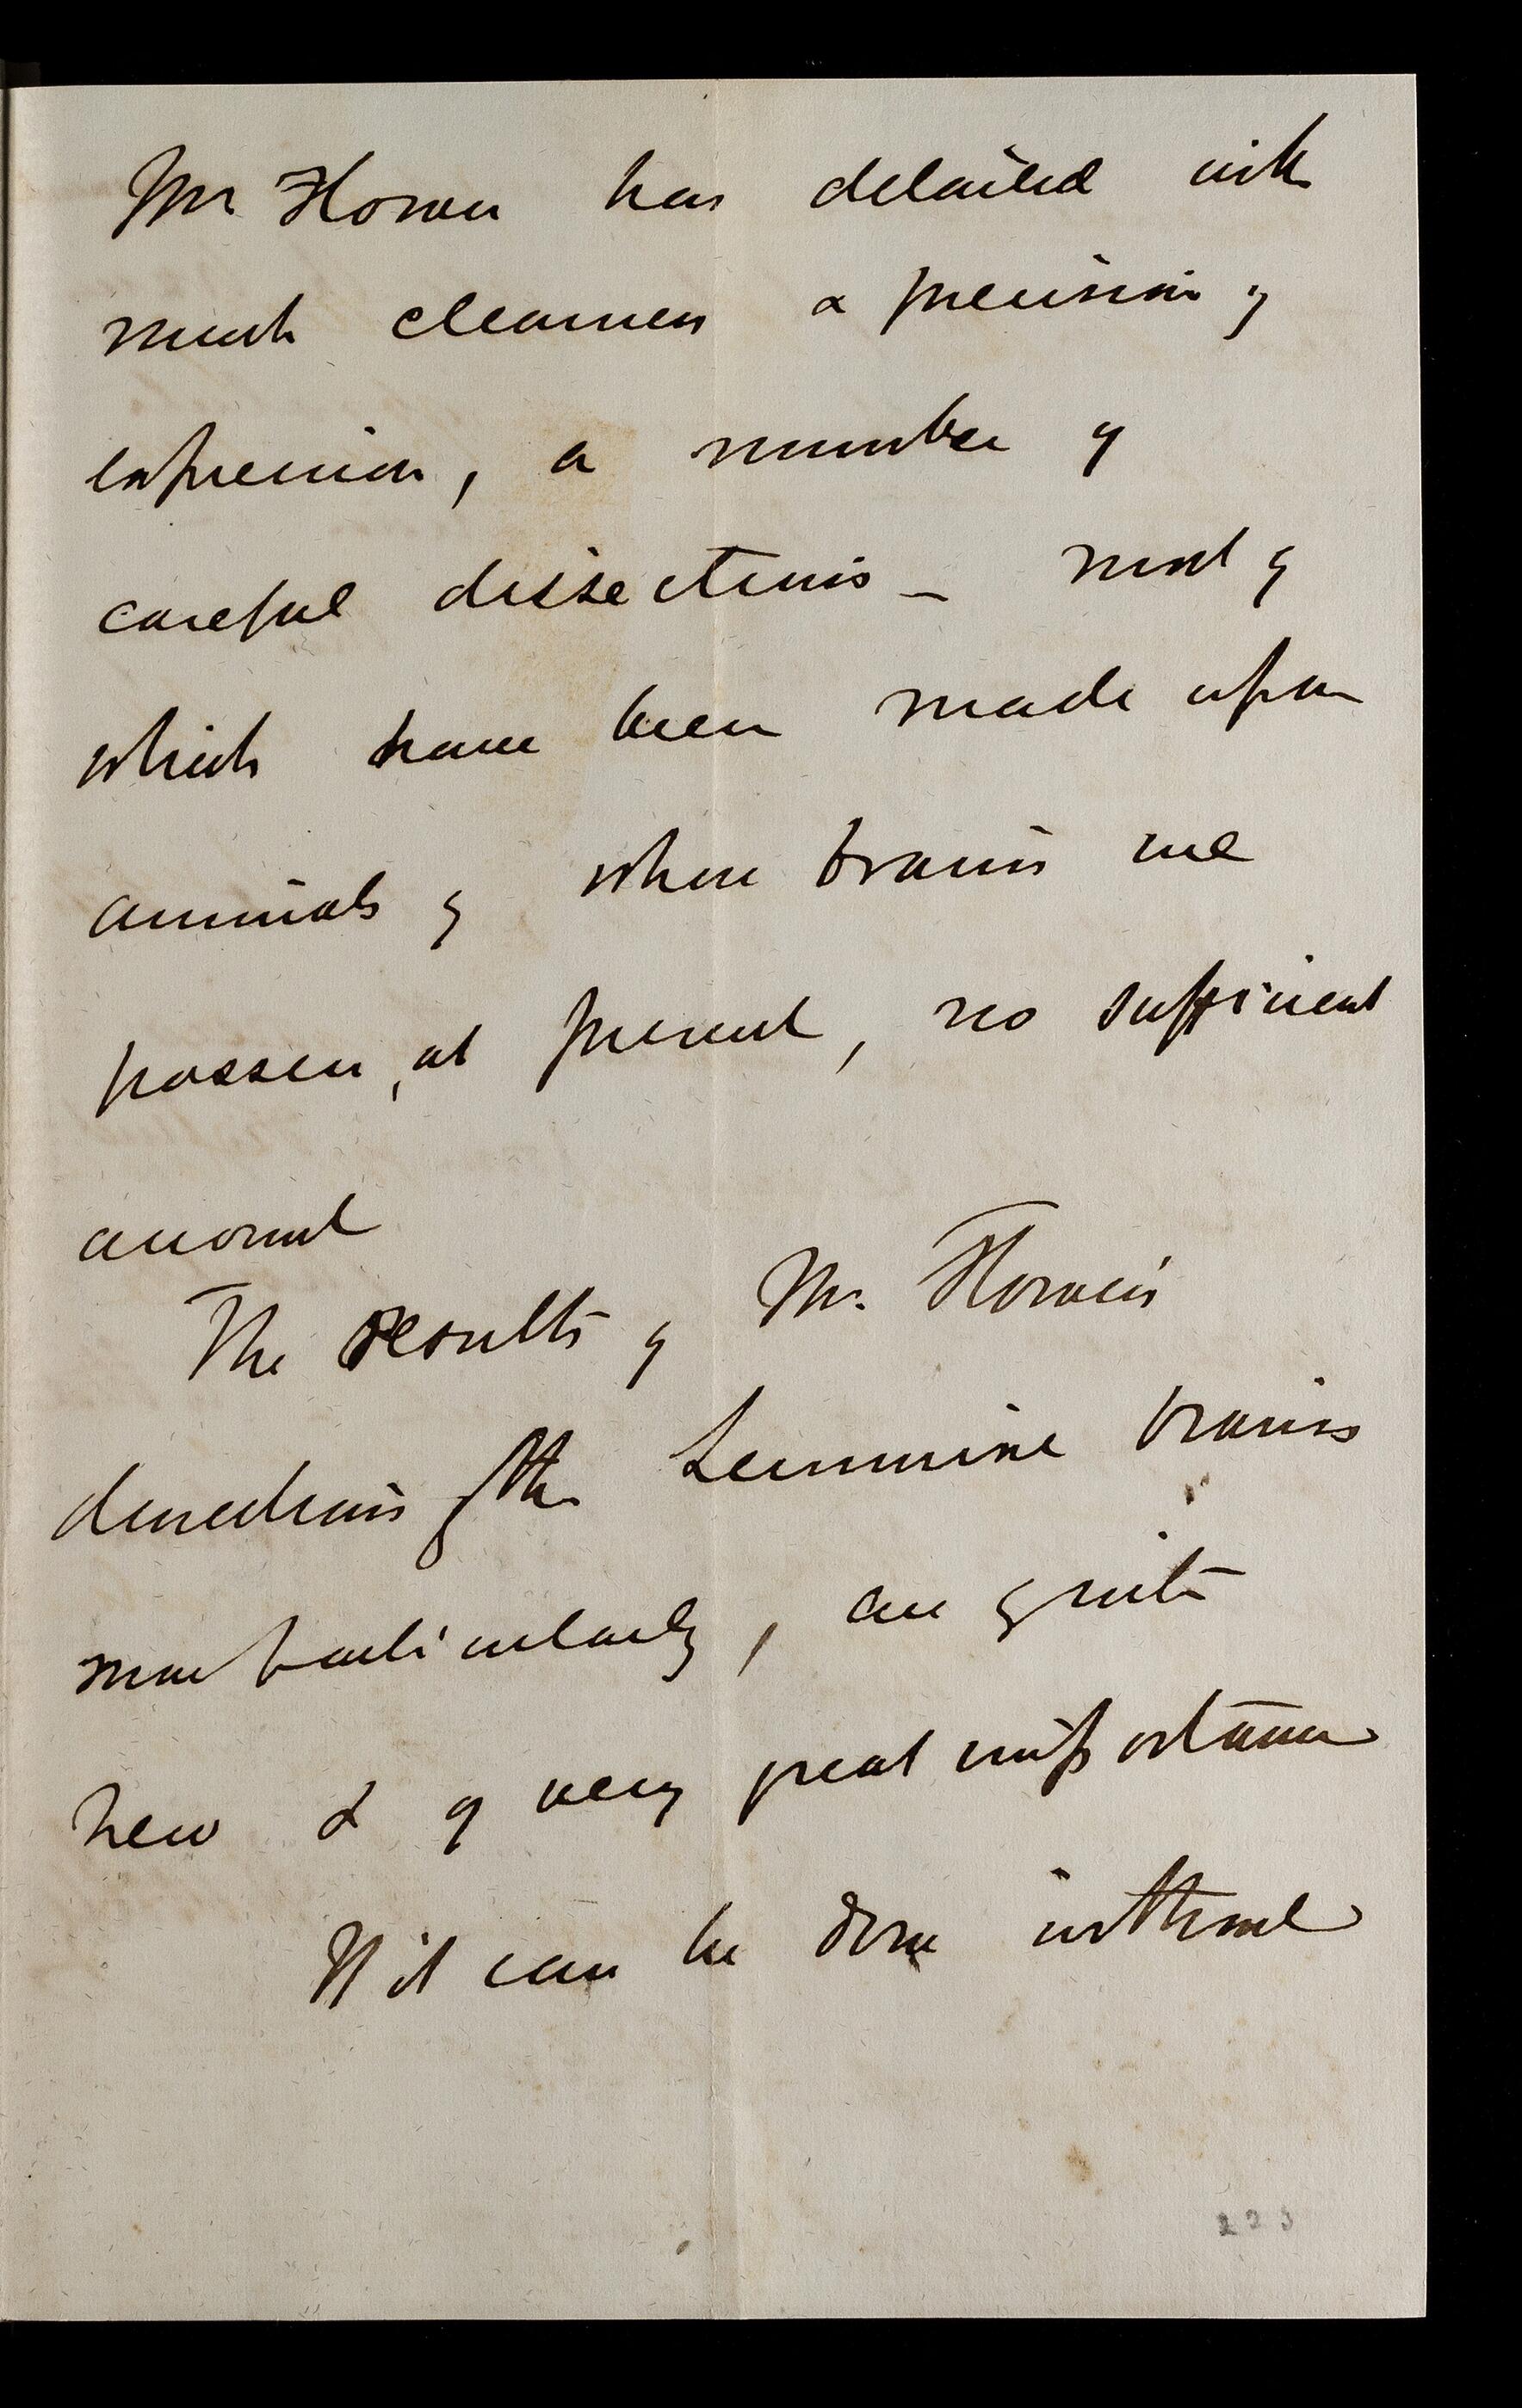 Mr Flower has detailed with
much clearness & precision of
expression, a number of
careful dissections – most of
which have been made upon
animals of whose brains we
possess, at present, no sufficient
account
The results of Mr. Flower's
dissections of the Lemurine brains
more particularly, are quite
new & of very great importance
If it can be done without
223